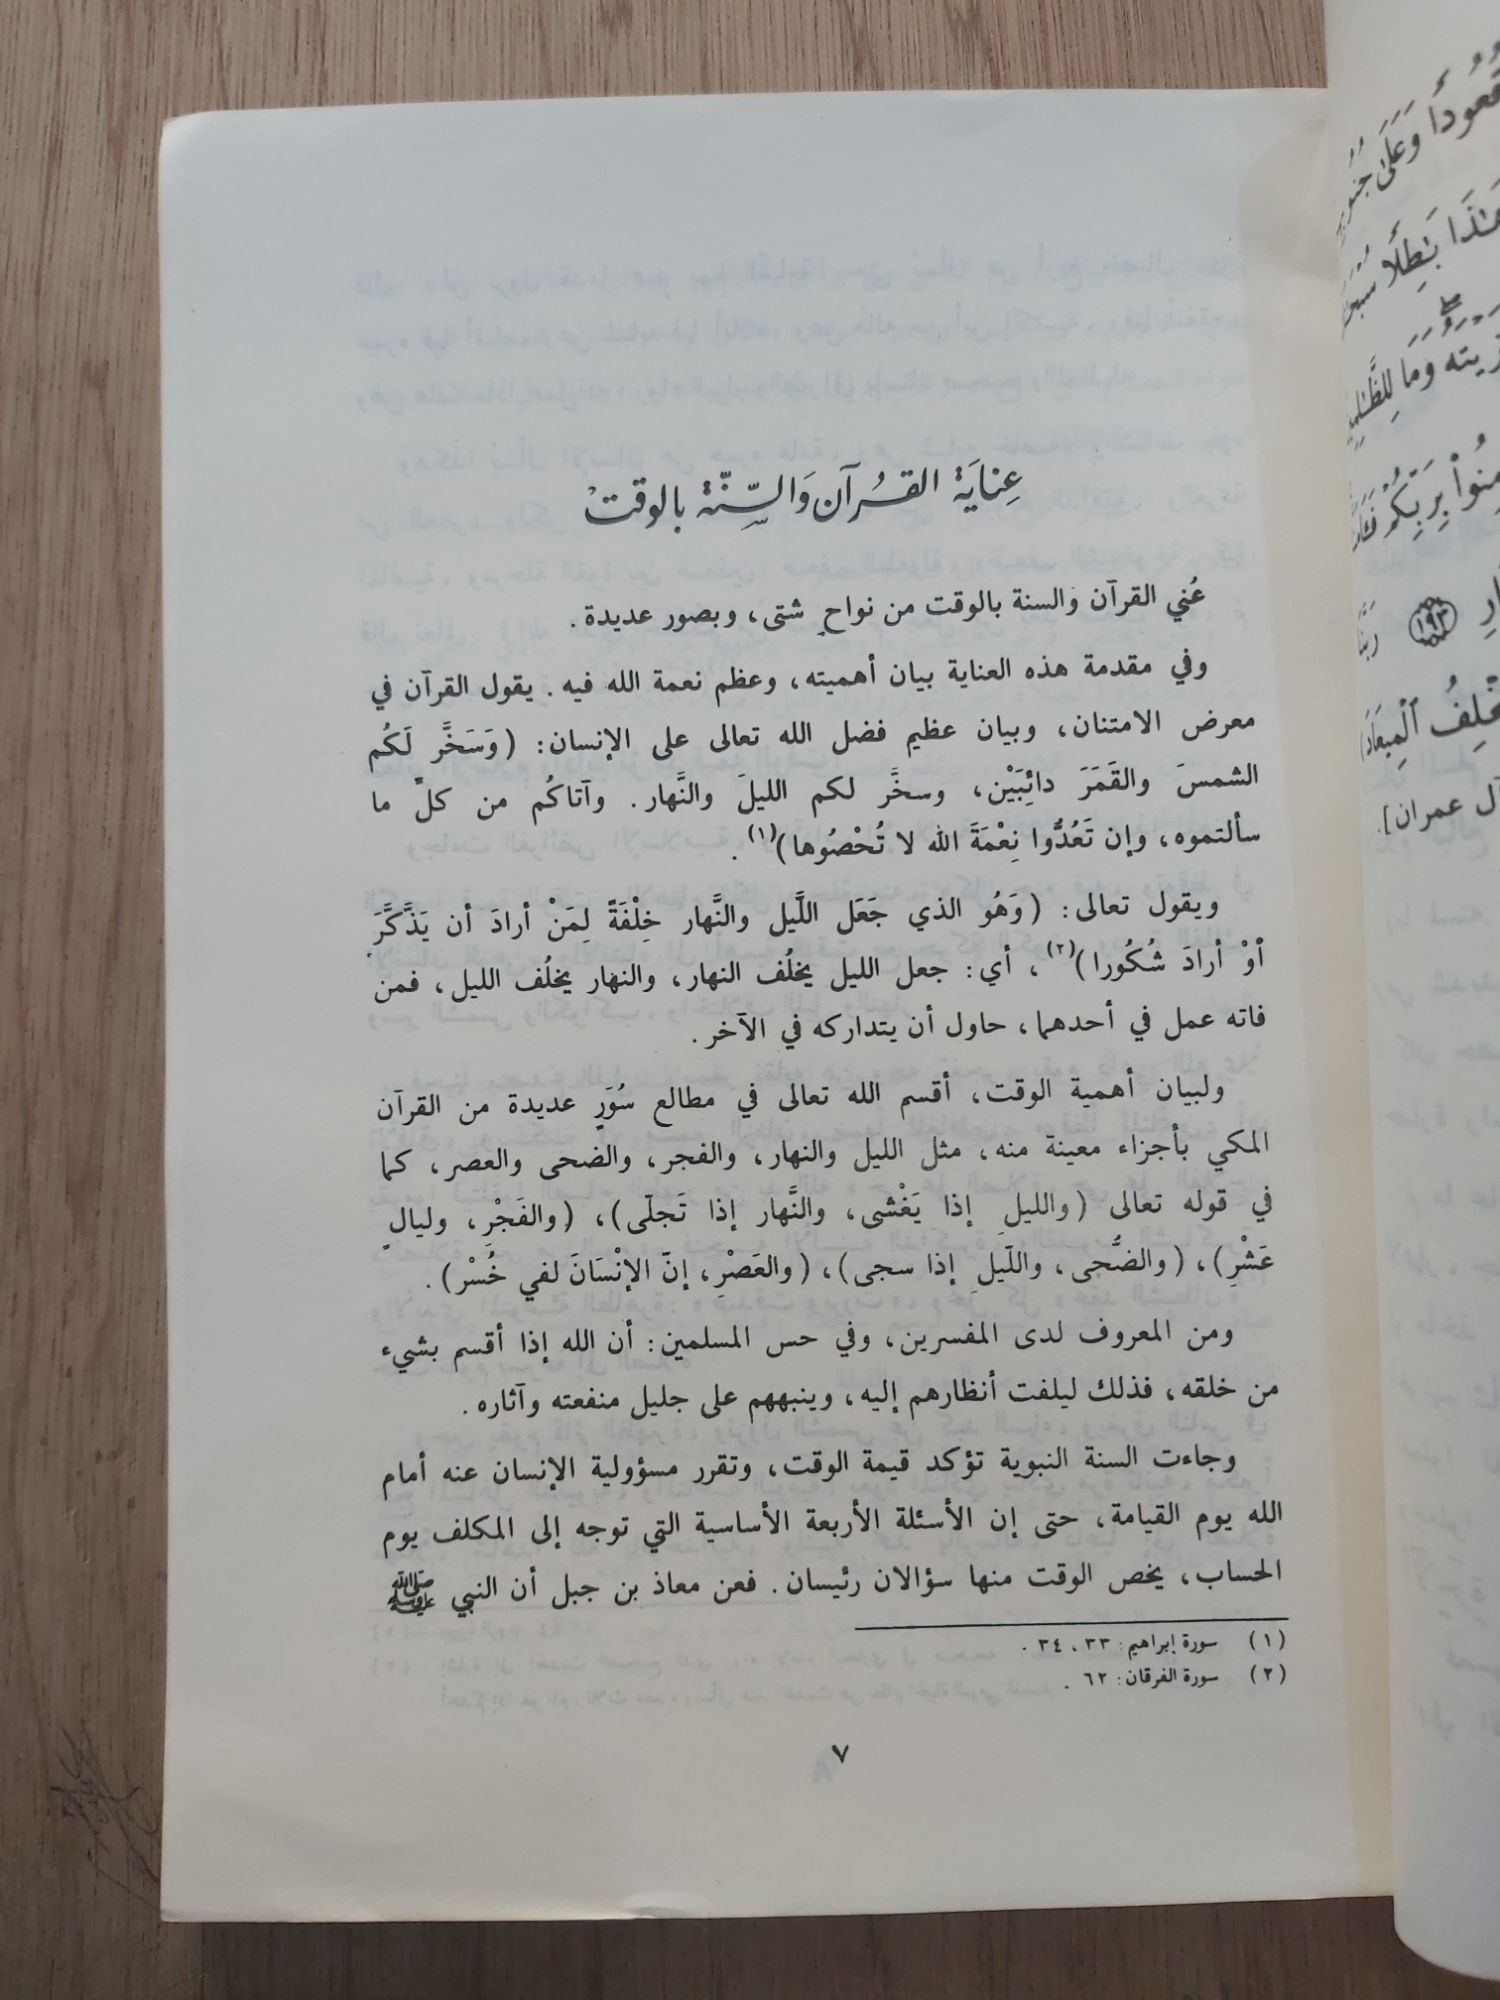 عِنايَة القُرآن وَالسِّنّة بالوقت
عُني القرآن والسنة بالوقت من نواحٍ شتى، وبصور عديدة.
وفي مقدمة هذه العناية بيان أهميته، وعظم نعمة الله فيه. يقول القرآن في
معرض الامتنان، وبيان عظيم فضل الله تعالى على الإنسان: (وَسَخَّر لَكُم
الشمسَ والقَمَرَ دائِبَيْن، وسخَّر لكم الليلَ والنَّهار. وآتاكُم من كلِّ ما
سألتموه، وإن تَعُدُّوا نِعْمَةَ الله لا تُحْصُوها)(١).
ويقول تعالى: (وَهُو الذي جَعَل اللَّيل والنَّهار خِلْفَةً لِمَنْ أرادَ أن يَذَّكَّرَ
أوْ أرادَ شُكُورا)(٢)، أي: جعل الليل يخلُف النهار، والنهار يخلُف الليل، فمن
فاته عمل في أحدهما، حاول أن يتداركه في الآخر.
ولبيان أهمية الوقت، أقسم الله تعالى في مطالع سُوَرٍ عديدة من القرآن
المكي بأجزاء معينة منه، مثل الليل والنهار، والفجر، والضحى والعصر، كما
في قوله تعالى (والليلِ إذا يَغْشى، والنَّهار إذا تَجلّى)، (والفَجْرِ، وليالٍ
عَشْرِ)، (والضُّحى، واللّيلِ إذا سجى)، (والعَصْرِ، إنّ الإنْسَانَ لفي خُسْر).
ومن المعروف لدى المفسرين، وفي حس المسلمين: أن الله إذا أقسم بشيء
من خلقه، فذلك ليلفت أنظارهم إليه، وينبههم على جليل منفعته وآثاره.
وجاءت السنة النبوية تؤكد قيمة الوقت، وتقرر مسؤولية الإنسان عنه أمام
الله يوم القيامة، حتى إن الأسئلة الأربعة الأساسية التي توجه إلى المكلف يوم
الحساب، يخص الوقت منها سؤالان رئيسان. فعن معاذ بن جبل أن النبي ﷺ
(١) سورة إبراهيم: ٣٣، ٣٤.
(٢) سورة الفرقان: ٦٢.
٧
قُعُودًا وَعَلَىٰ
بَٰطِلًا
وَمَا لِلظَّٰلِمِينَ
بِرَبِّكُمْ
١٩٣
ٱلْمِيعَادَ
آل عمران].